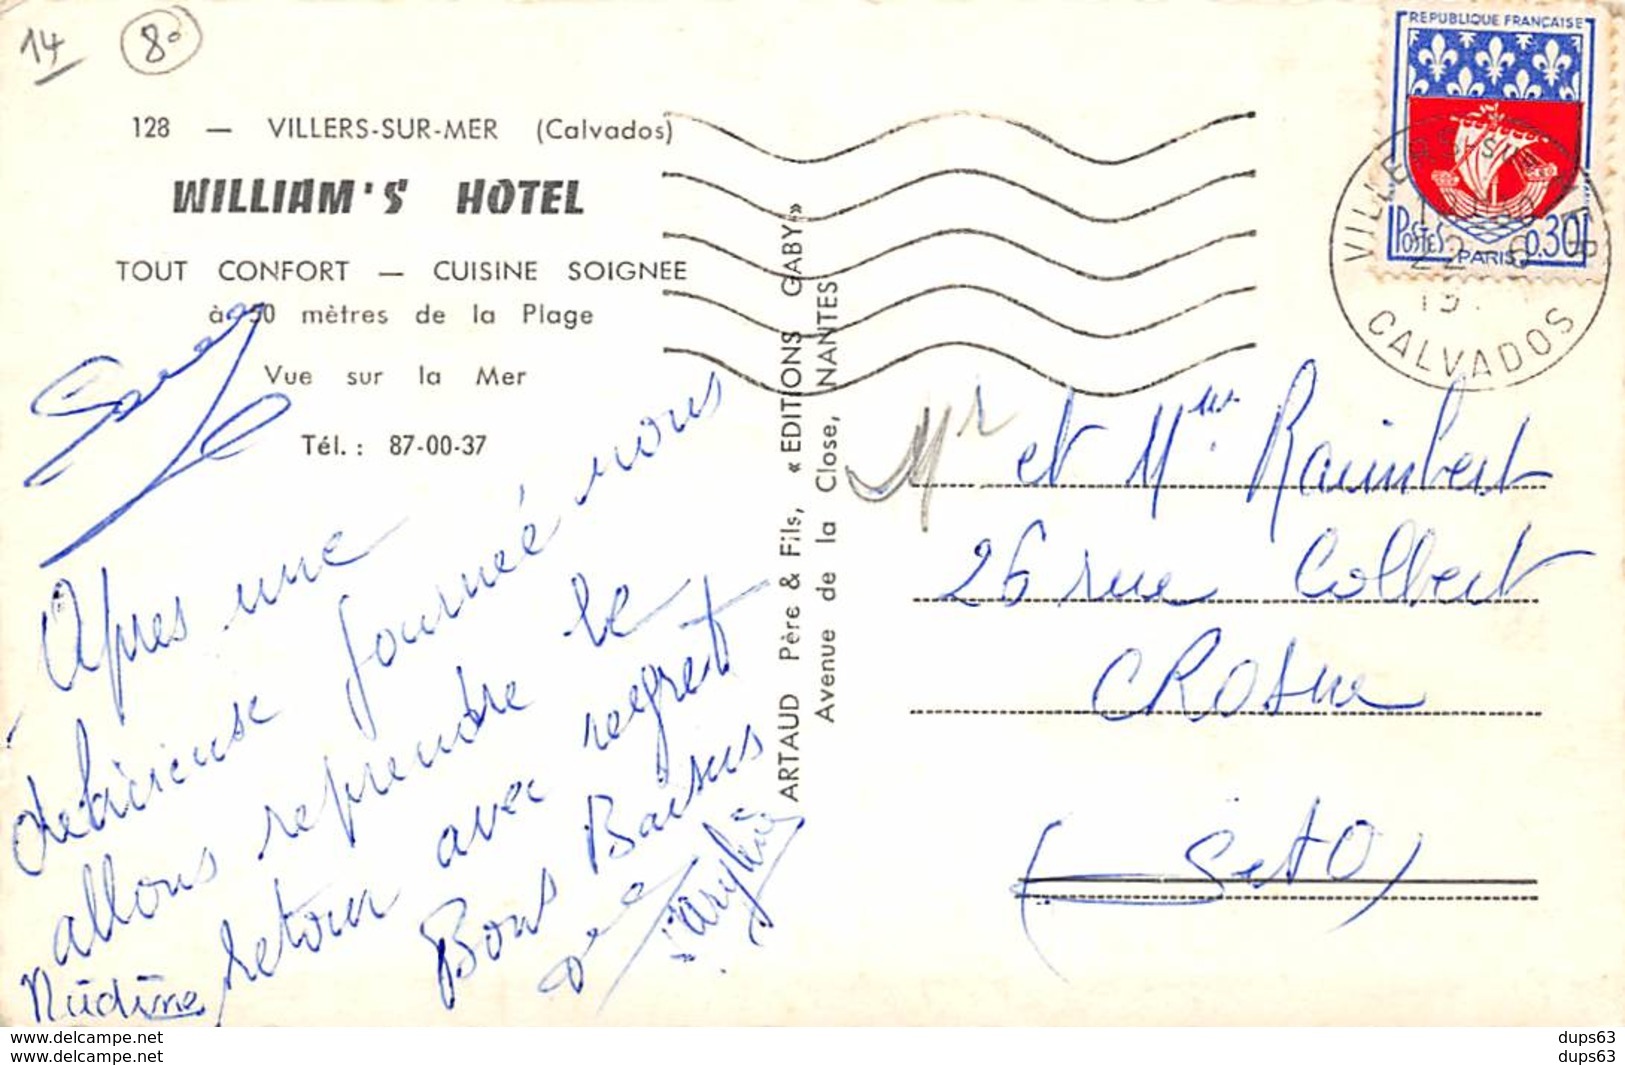 14
80
128 — VILLERS-SUR-MER (Calvados)
WILLIAM'S HOTEL
TOUT CONFORT — CUISINE SOIGNEE
à 50 mètres de la Plage
Vue sur la Mer
Tél. : 87-00-37
Apres une
délicieuse journée nous
allons reprendre le
retour avec regret
Bons Baisers
Nadine
ARTAUD Père & Fils, « EDITIONS GABY »
Avenue de la Close, NANTES
REPUBLIQUE FRANÇAISE
POSTES 0,30
PARIS
VILLERS-SUR-MER
22-6
19
CALVADOS
Mr et Mme Raimbert
26 rue Colbert
CROSNE
(S et O)
dups63
delcampe.net
dups63
delcampe.net